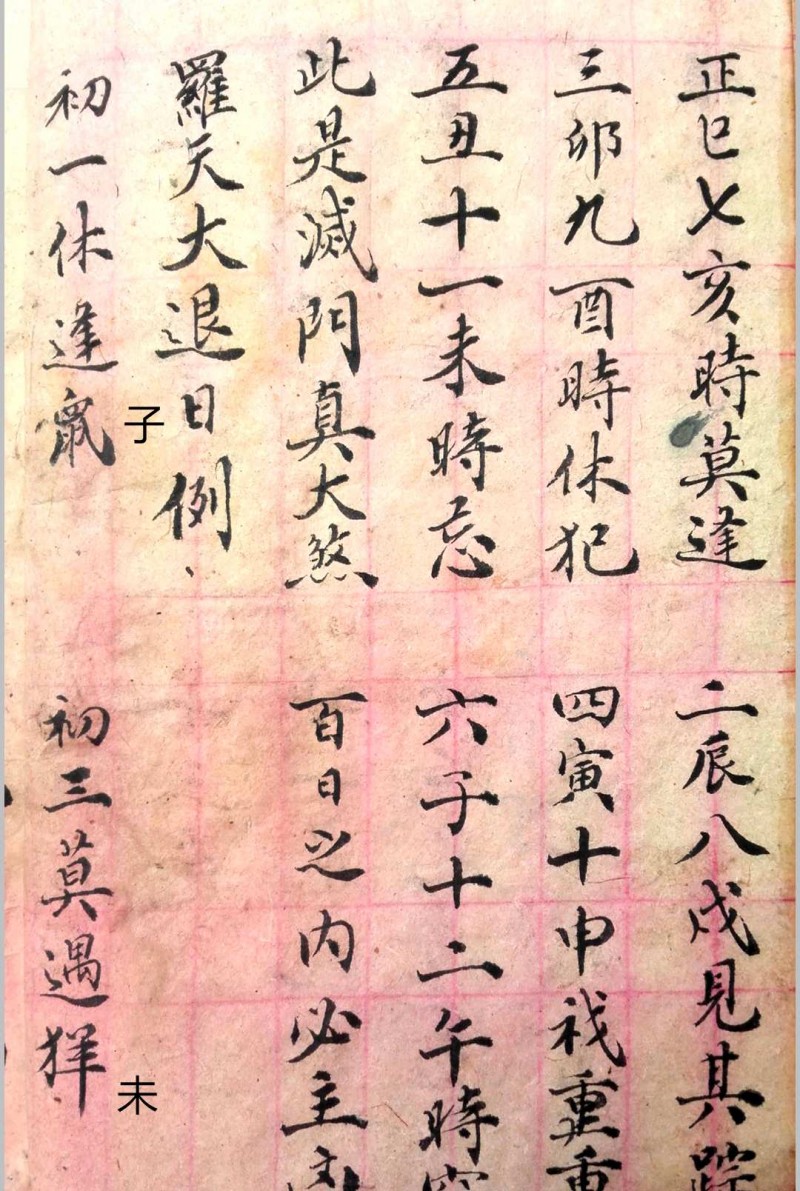 正巳七亥時莫逢 二辰八戌見其踪
三卯九酉時休犯 四寅十申重重
五丑十一未時忘 六子十二午時
此是滅門真大煞 百日之内必主
羅天大退日例、
初一休逢鼠 子 初三莫遇羊 未